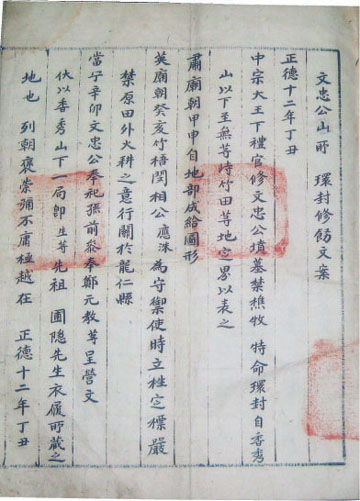 文忠公山所 環封修飭文案
正德十二年丁丑
中宗大王下禮官修文忠公墳墓禁樵牧 特命環封自香秀
山以下至無等峙竹田等地定界以表之
肅廟朝甲申自地部成給圖形
英廟朝癸亥竹梧閔相公應洙為守禦使時立牲定標嚴
禁原田外火耕之意行關於龍仁縣
當宁辛卯文忠公奉祀孫前參奉鄭元教等呈營文
伏以香秀山下一局卽生等先祖 圃隱先生衣履所藏之
地也 列朝褒崇彌不庸極越在 正德十二年丁丑